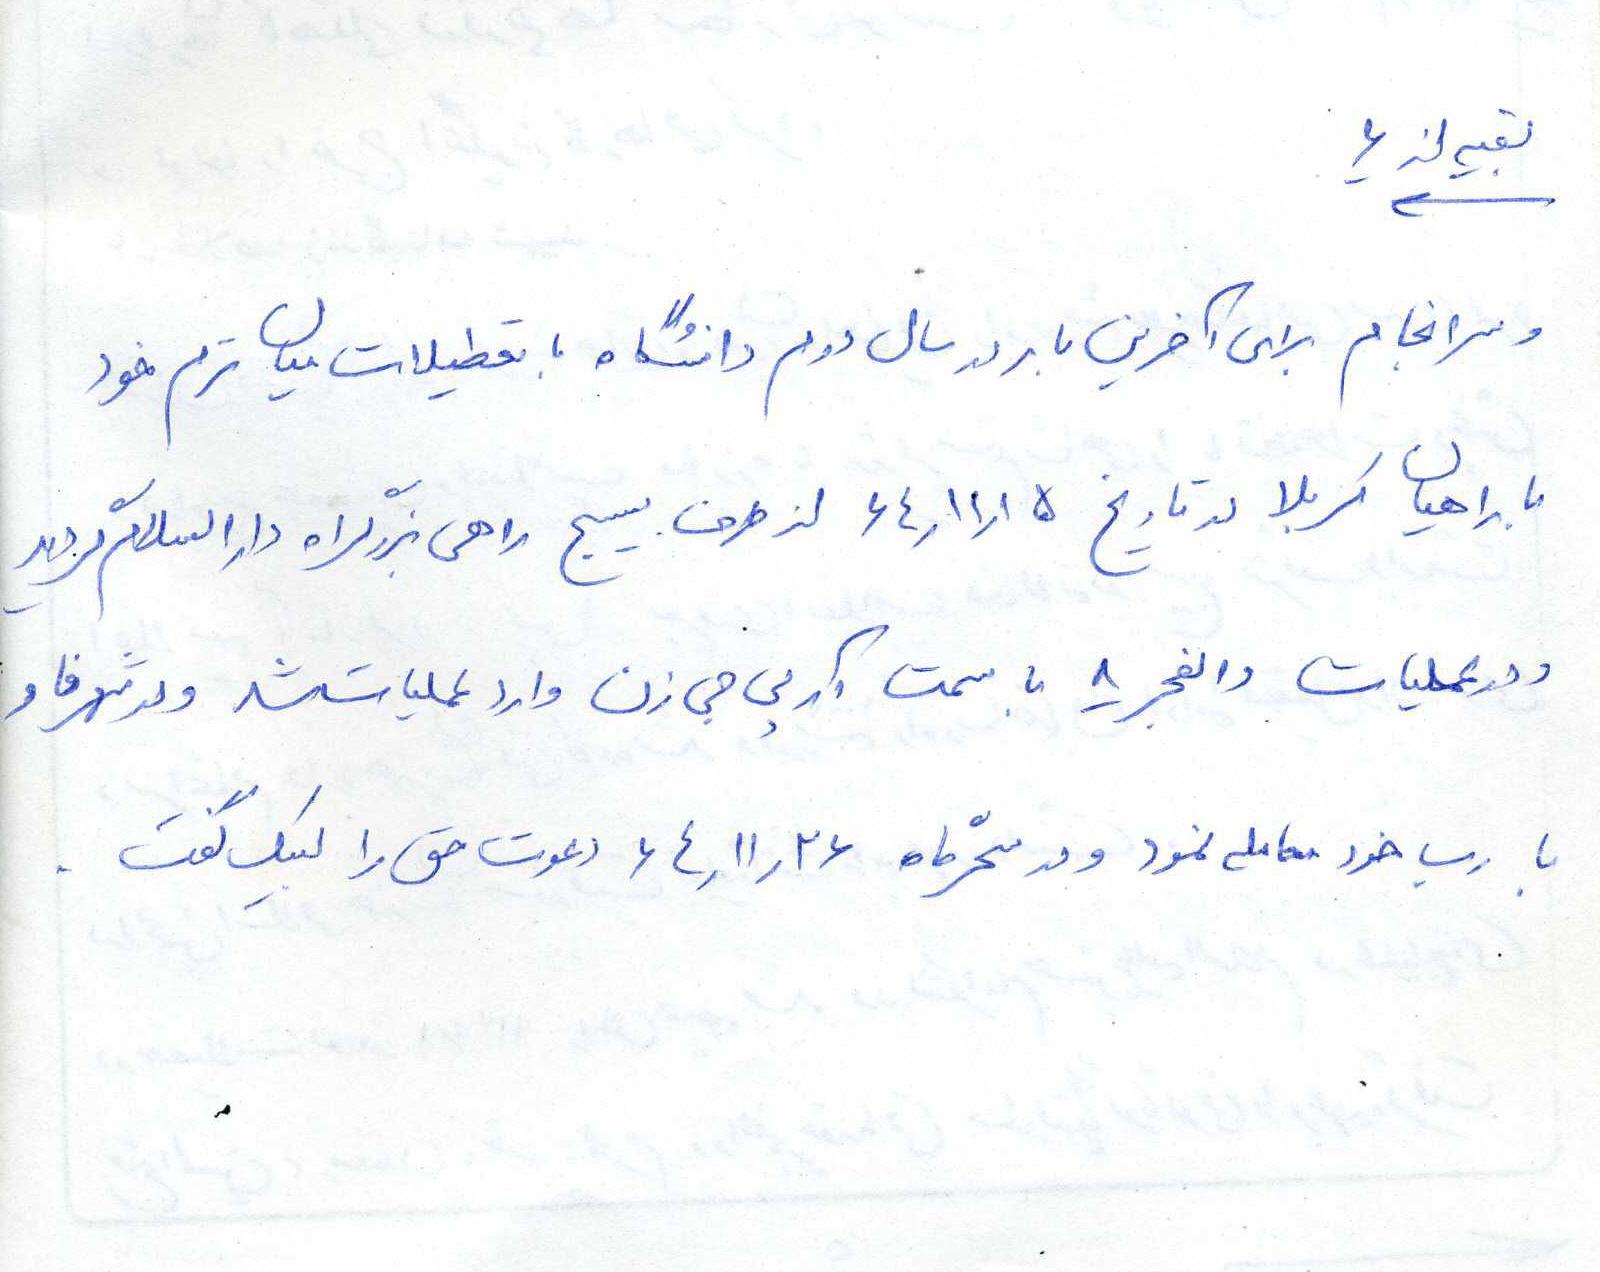 بقیه از ۶
و سرانجام برای آخرین بار در سال دوم دانشگاه با تعطیلات میان ترم خود
با راهیان کربلا در تاریخ ۶۴/۱۱/۱۵ از طرف بسیج راهی بزرگراه دارالسلام گردید
و در عملیات والفجر ۸ با سمت آر پی جی زن وارد عملیات شد و در شهر فاو
با رب خود معامله نمود و در سحرگاه ۶۴/۱۱/۲۶ دعوت حق را لبیک گفت .